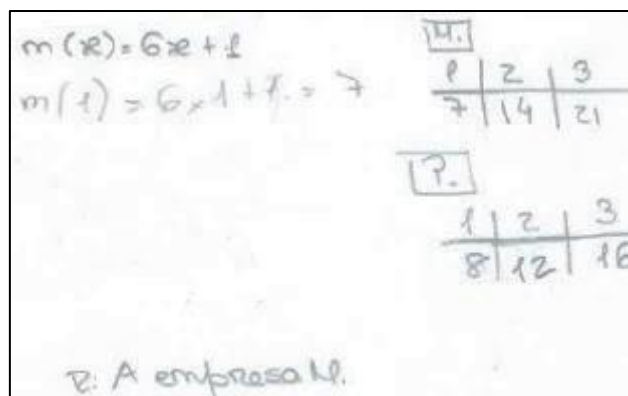 m(x) = 6x + 1
m(1) = 6 x 1 + 1 = 7
M.
1 | 2 | 3
7 | 14 | 21
P.
1 | 2 | 3
8 | 12 | 16
R: A empresa M.